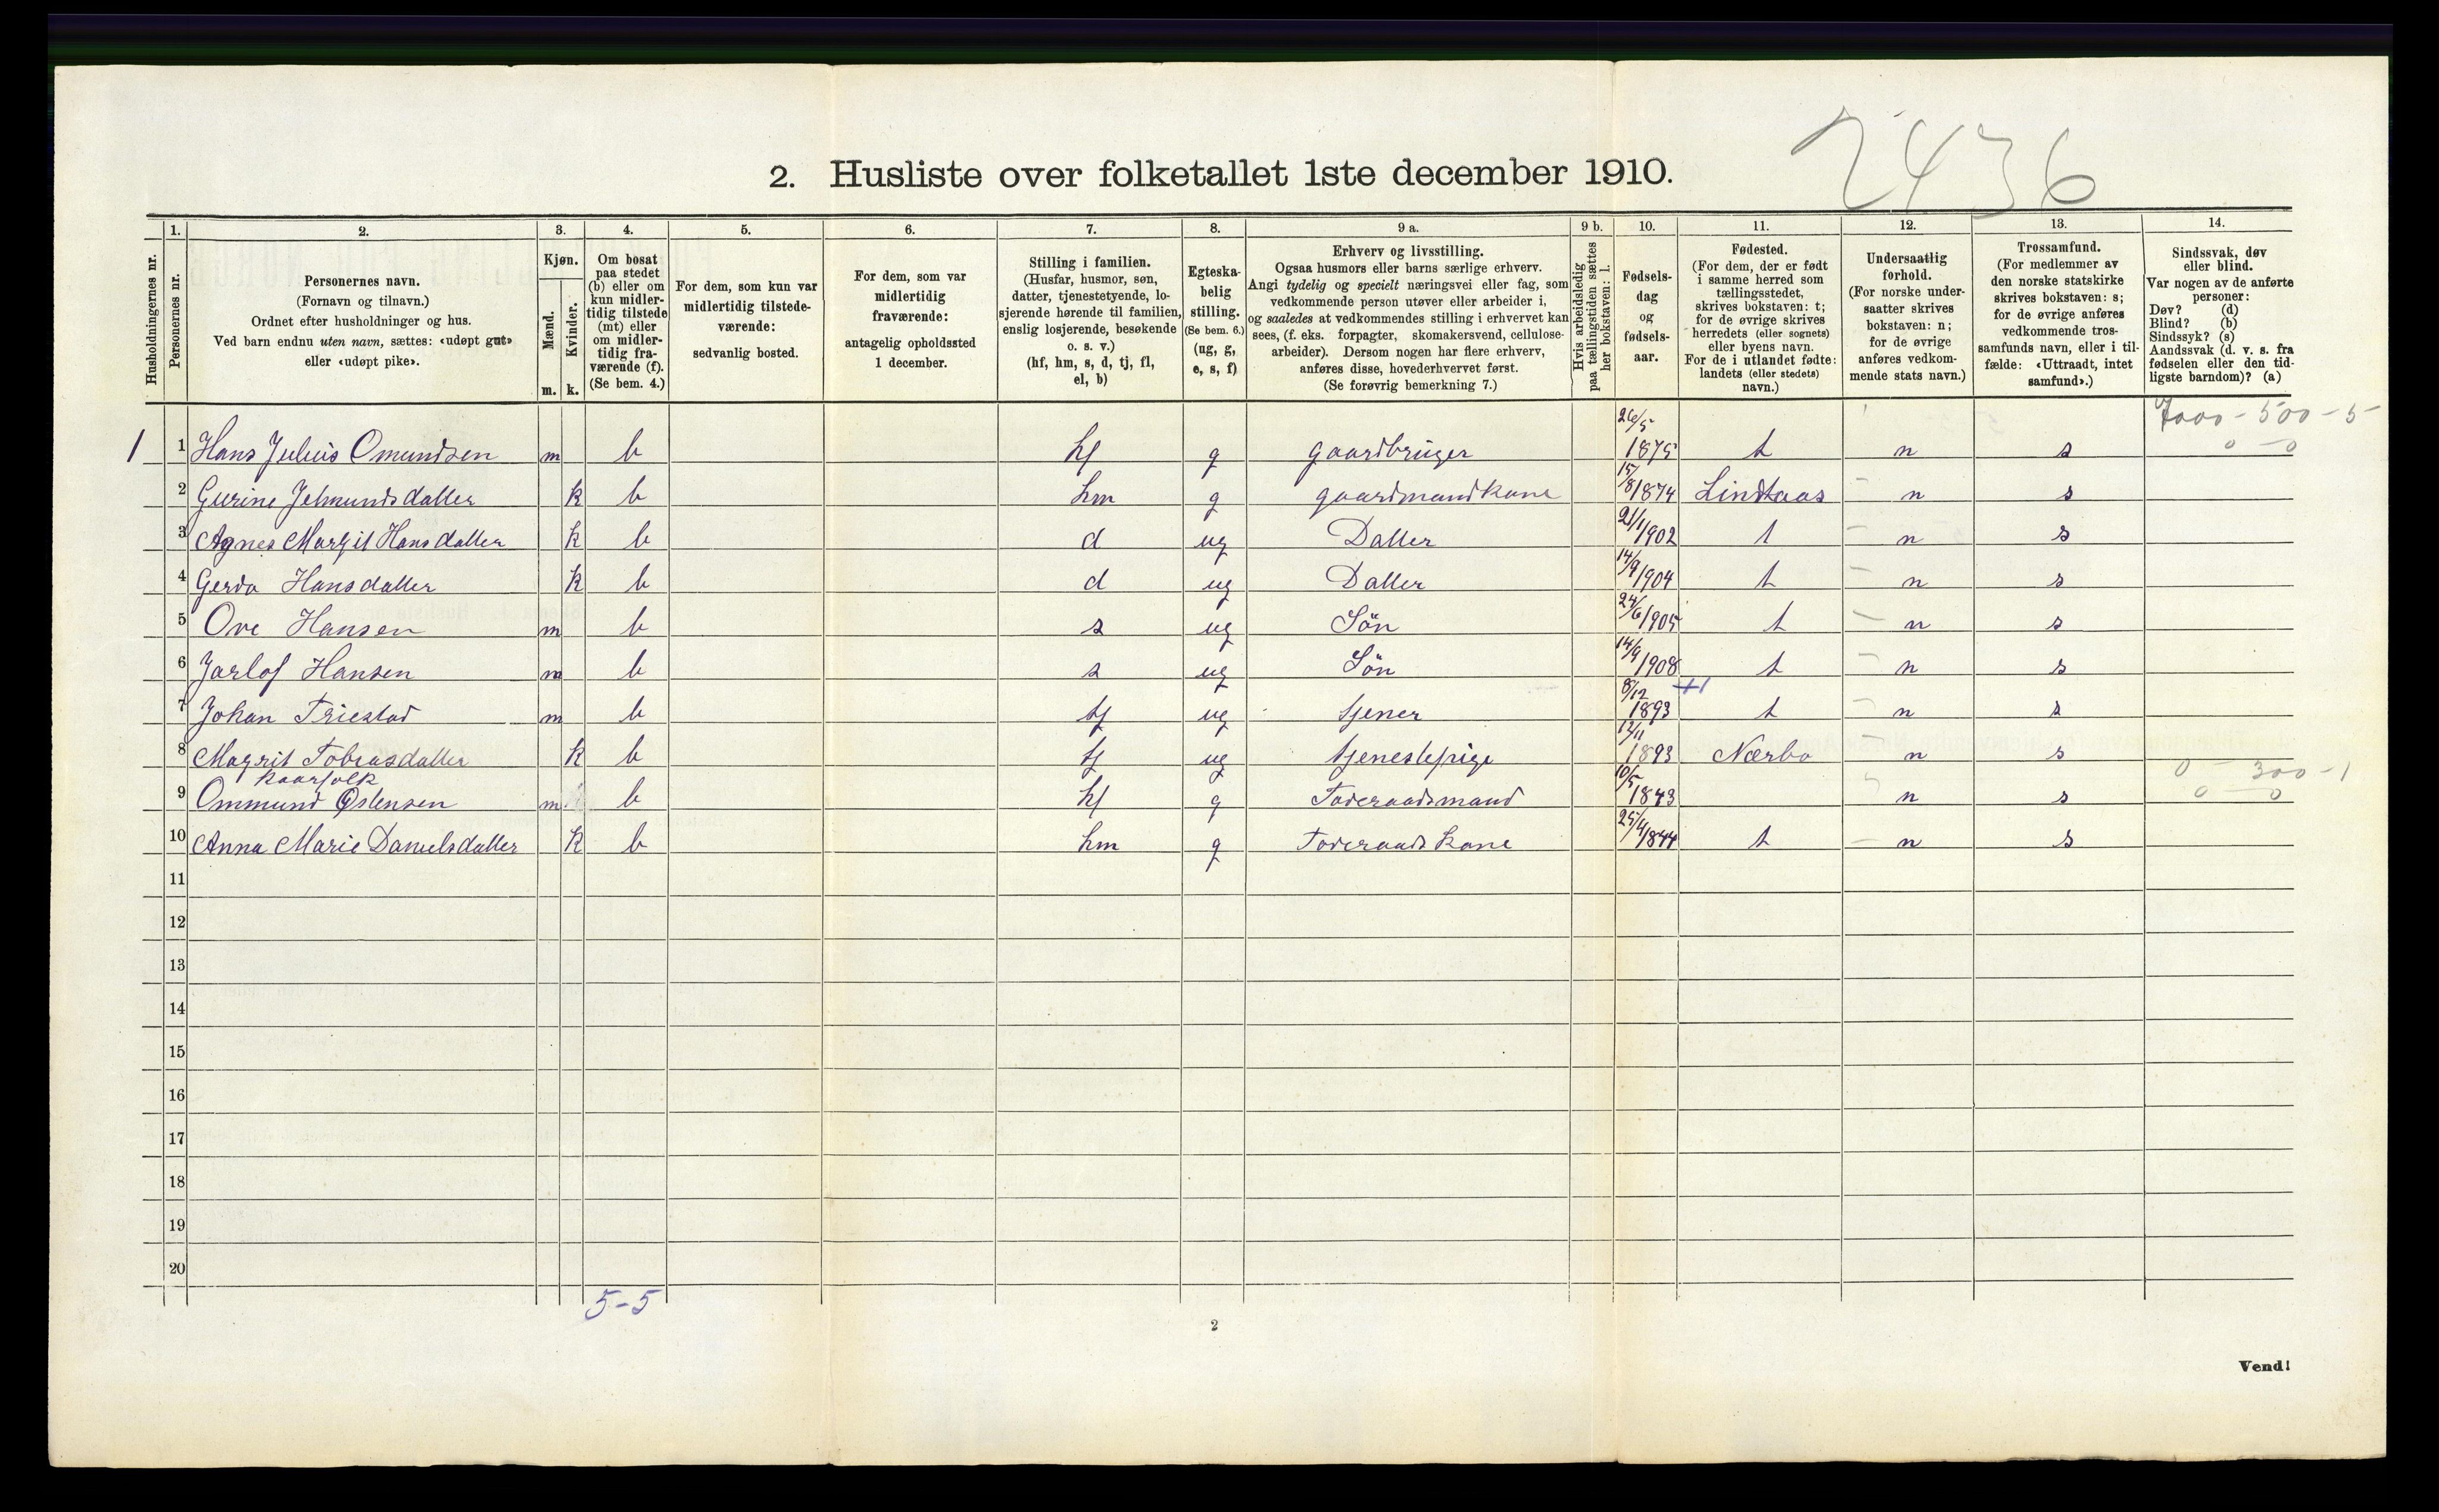 2436
2. Husliste over folketallet 1ste december 1910.
Husholdningernes nr.
1. Personernes nr.
2. Personernes navn. (Fornavn og tilnavn.) Ordnet efter husholdninger og hus. Ved barn endnu uten navn, sættes: «udøpt gut» eller «udøpt pike».
3. Kjøn. Mænd. m. Kvinder. k.
4. Om bosat paa stedet (b) eller om kun midlertidig tilstede (mt) eller om midlertidig fraværende (f). (Se bem. 4.)
5. For dem, som kun var midlertidig tilstedeværende: sedvanlig bosted.
6. For dem, som var midlertidig fraværende: antagelig opholdssted 1 december.
7. Stilling i familien. (Husfar, husmor, søn, datter, tjenestetyende, losjerende hørende til familien, enslig losjerende, besøkende o. s. v.) (hf, hm, s, d, tj, fl, el, b)
8. Egteskabelig stilling. (Se bem. 6.) (ug, g, e, s, f)
9 a. Erhverv og livsstilling. Ogsaa husmors eller barns særlige erhverv. Angi tydelig og specielt næringsvei eller fag, som vedkommende person utøver eller arbeider i, og saaledes at vedkommendes stilling i erhvervet kan sees, (f. eks. forpagter, skomakersvend, cellulosearbeider). Dersom nogen har flere erhverv, anføres disse, hovederhvervet først. (Se forøvrig bemerkning 7.)
9 b. Hvis arbeidsledig paa tællingstiden sættes her bokstaven: l.
10. Fødselsdag og fødselsaar.
11. Fødested. (For dem, der er født i samme herred som tællingsstedet, skrives bokstaven: t; for de øvrige skrives herredets (eller sognets) eller byens navn. For de i utlandet fødte: landets (eller stedets) navn.)
12. Undersaatlig forhold. (For norske undersaatter skrives bokstaven: n; for de øvrige anføres vedkommende stats navn.)
13. Trossamfund. (For medlemmer av den norske statskirke skrives bokstaven: s; for de øvrige anføres vedkommende trossamfunds navn, eller i tilfælde: «Uttraadt, intet samfund».)
14. Sindssvak, døv eller blind. Var nogen av de anførte personer: Døv? (d) Blind? (b) Sindssyk? (s) Aandssvak (d. v. s. fra fødselen eller den tidligste barndom)? (a)
7000 - 500 - 5
0 - 0
1 1 Hans Julius Omundsen m b hf g gaardbruger 26/5 1875 t n s
2 Gurine Jelmundsdatter k b hm g gaardmandkone 15/8 1874 Lindtaas n s
3 Agnes Margit Hansdatter k b d ug Datter 21/1 1902 t n s
4 Gerda Hansdatter k b d ug Datter 14/9 1904 t n s
5 Ove Hansen m b s ug Sön 24/6 1905 t n s
6 Jarlof Hansen m b s ug Sön 14/9 1908 t n s
7 Johan Triestad m b tj ug tjener 8/12 1893 t n s
8 Magrit Tobiasdatter k b tj ug tjenestepige 12/11 1893 Nærbo n s
kaarfolk 0 - 300 - 1
9 Ommund Østensen m b hf g Foderaadsmand 10/5 1843 n s 0 - 0
10 Anna Marie Danielsdatter k b hm g Foderaadskone 25/4 1844 t n s
11
12
13
14
15
16
17
18
19
20
5-5
2
Vend!